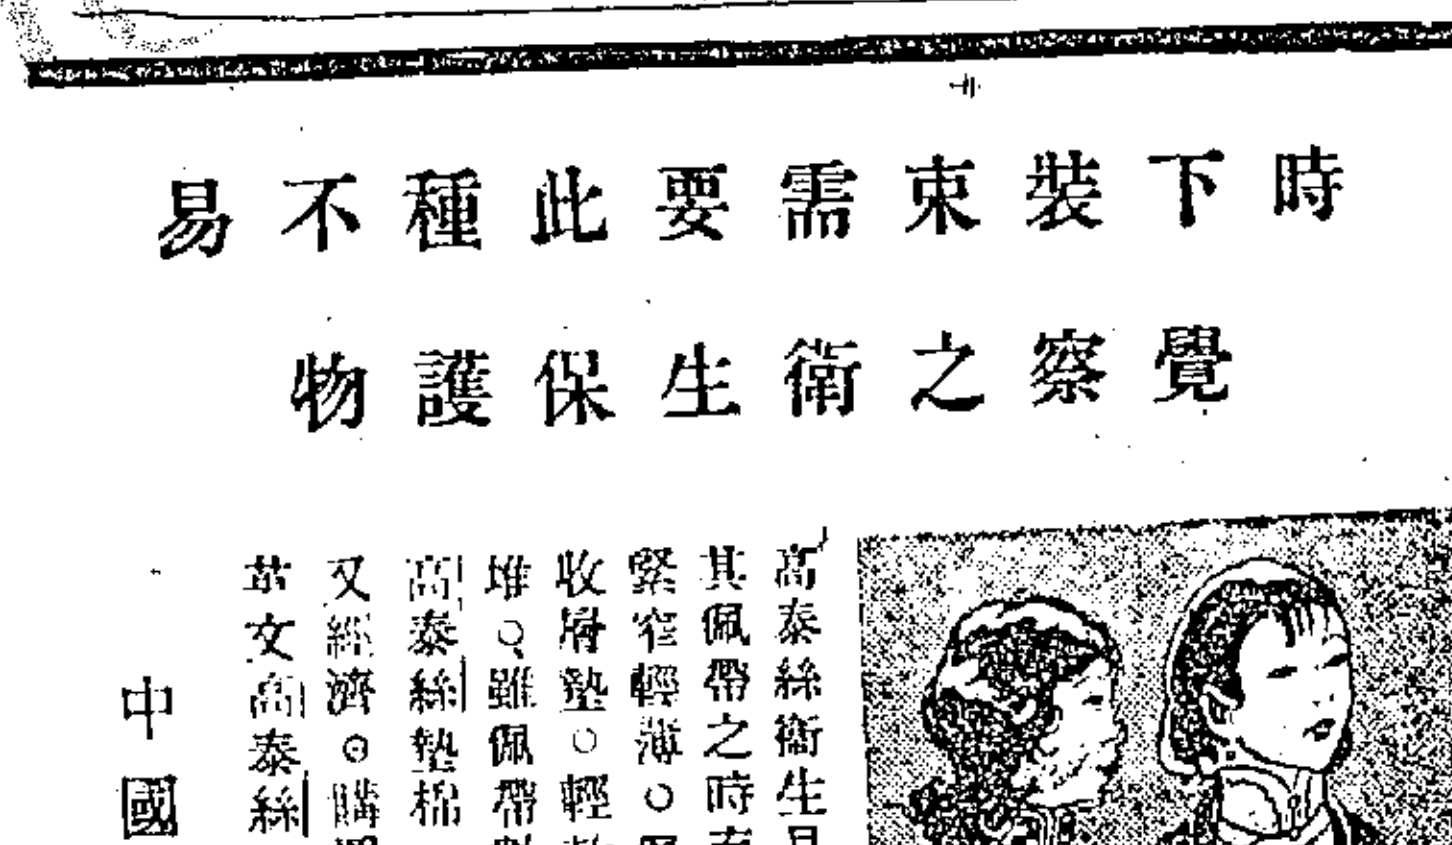 時下裝束需要此種不易
覺察之衛生保護物
高泰絲衛生
其佩帶之時
緊窄輕薄。
收屑墊。輕
堆。雖佩帶
高泰絲墊棉
又經濟。購
英文高泰絲
中國